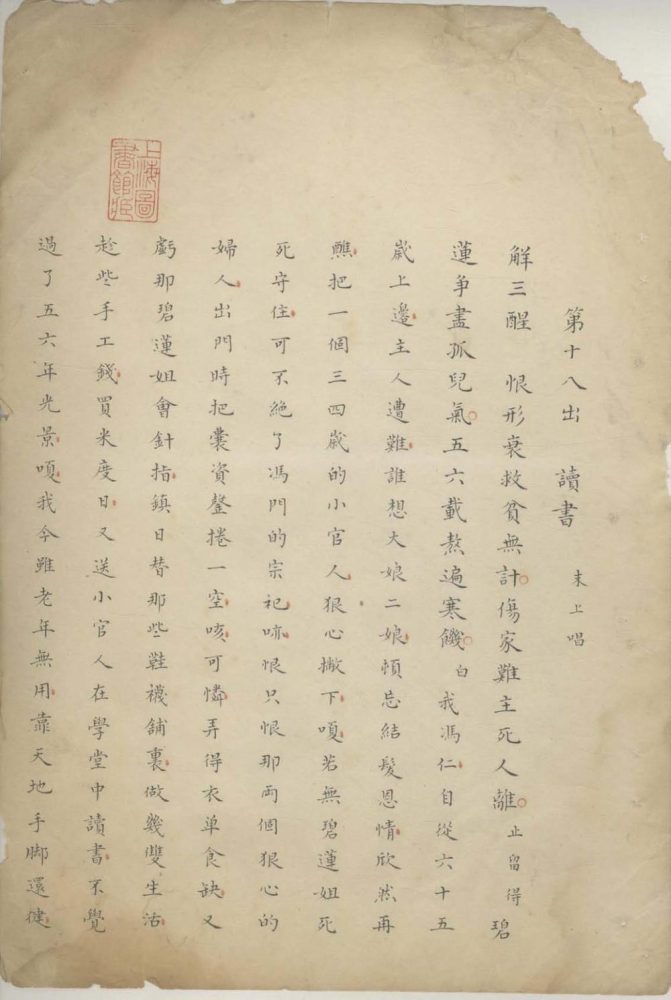 第十八出　讀書　末上唱
解三酲　恨形衰救貧無計。傷家難主死人離。止留得碧
蓮爭盡孤兒氣。五六載熬遍寒饑。白我馮仁自從六十五
歲上邊主人遭難誰想大娘二娘頓忘結髮恩情欣然再
醮把一個三四歲的小官人狠心撇下嗄若無碧蓮姐死
死守住可不絕了馮門的宗祀㖸恨只恨那兩個狠心的
婦人出門時把囊資罄捲一空咳可憐弄得衣單食缺又
虧那碧蓮姐會針指鎮日替那些鞋襪舖裏做幾雙生活
趁些手工錢買米度日又送小官人在學堂中讀書不覺
過了五六年光景嗄我今雖老年無用靠天地手脚還健
上海圖
書館藏